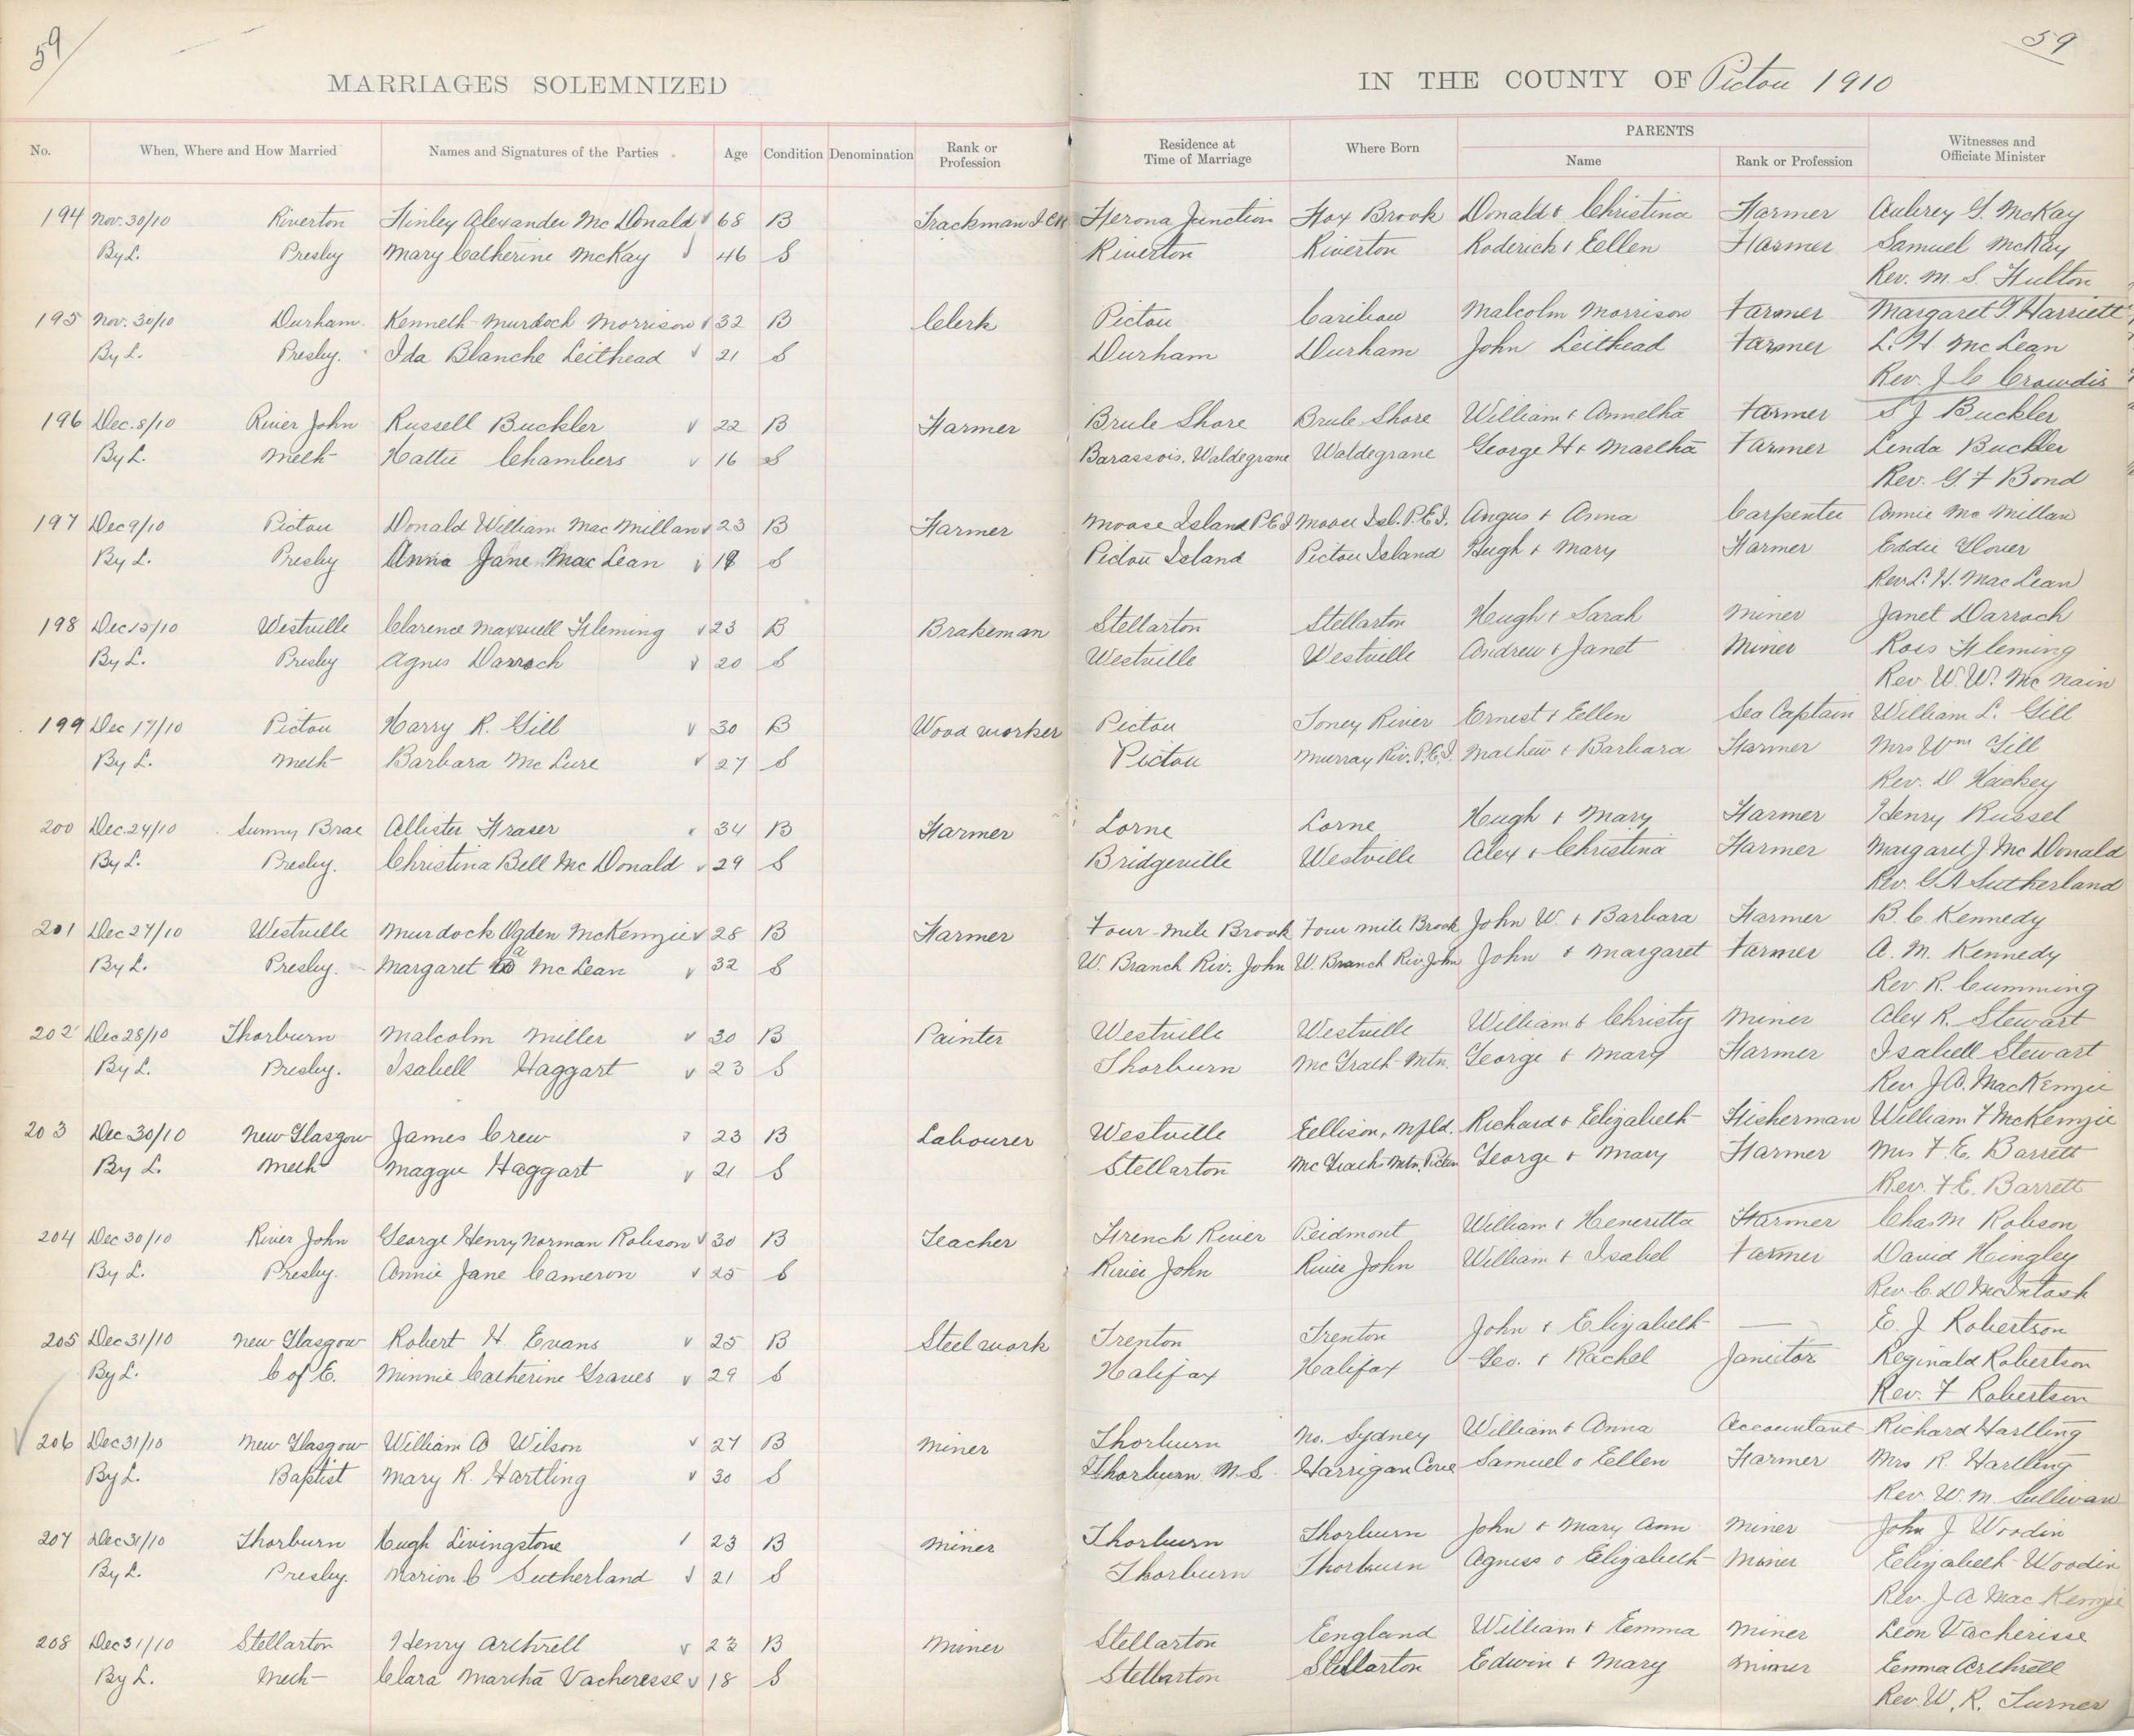 59 59
MARRIAGES SOLEMNIZED IN THE COUNTY OF Pictou 1910
No. When, Where and How Married Names and Signatures of the Parties Age Condition Denomination Rank or Profession Residence at Time of Marriage Where Born PARENTS Name Rank or Profession Witnesses and Officiate Minister
194 Nov. 30/10 Riverton Finley Alexander McDonald 68 B Trackman I.C.R Ferona Junction Fox Brook Donald & Christina Farmer Aubrey G. McKay
By L. Presby Mary Catherine McKay 46 S Riverton Riverton Roderick & Ellen Farmer Samuel McKay
Rev. M. S. Fulton
195 Nov. 30/10 Durham Kenneth Murdoch Morrison 32 B Clerk Pictou Caribou Malcolm Morrison Farmer Margaret Harriett
By L. Presby. Ida Blanche Leithead 21 S Durham Durham John Leithead Farmer L. H. McLean
Rev. J C Crowdis
196 Dec. 8/10 River John Russell Buckler 22 B Farmer Brule Shore Brule Shore William & Annetha Farmer S J Buckler
By L. Meth Hattie Chambers 16 S Barassois, Waldegrane Waldegrane George H & Martha Farmer Linda Buckler
Rev. G. F Bond
197 Dec 9/10 Pictou Donald William MacMillan 23 B Farmer Moose Island P.E.I Moose Isl. P.E.I. Angus & Anna Carpenter Annie McMillan
By L. Presby Anna Jane MacLean 18 S Pictou Island Pictou Island Hugh & Mary Farmer Eddie Glover
Rev L. H. MacLean
198 Dec 15/10 Westville Clarence Maxwell Fleming 23 B Brakeman Stellarton Stellarton Hugh & Sarah Miner Janet Darroch
By L. Presby Agnes Darroch 20 S Westville Westville Andrew & Janet Miner Ross Fleming
Rev. W. W. McNain
199 Dec 17/10 Pictou Harry R. Gill 30 B Wood worker Pictou Toney River Ernest & Ellen Sea Captain William L. Gill
By L. Meth Barbara McLure 27 S Pictou Murray Riv. P.E.I. Mathew & Barbara Farmer Mrs Wm Gill
Rev. D Hackey
200 Dec. 24/10 Sunny Brae Allister Fraser 34 B Farmer Lorne Lorne Hugh & Mary Farmer Henry Russel
By L. Presby. Christina Bell McDonald 29 S Bridgeville Westville Alex & Christina Farmer Margaret J McDonald
Rev. G A Sutherland
201 Dec 27/10 Westville Murdock Ogden McKenzie 28 B Farmer Four Mile Brook Four Mile Brook John W. & Barbara Farmer B. C. Kennedy
By L. Presby. Margaret a McLean 32 S W. Branch Riv. John W. Branch Riv John John & Margaret Farmer A. M. Kennedy
Rev. R. Cumming
202 Dec 28/10 Thorburn Malcolm Miller 30 B Painter Westville Westville William & Christy Miner Alex R. Stewart
By L. Presby. Isabell Haggart 23 S Thorburn McGrath Mtn. George & Mary Farmer Isabell Stewart
Rev. J A. MacKenzie
203 Dec 30/10 New Glasgow James Crew 23 B Labourer Westville Ellison, Nfld. Richard & Elizabeth Fisherman William F McKenzie
By L. Meth Maggie Haggart 21 S Stellarton McGraths Mtn. Pictou George & Mary Farmer Mrs F. E. Barrett
Rev. F E. Barrett
204 Dec 30/10 River John George Henry Norman Robson 30 B Teacher French River Peidmont William & Heneritta Farmer Chas M Robson
By L. Presby. Annie Jane Cameron 25 S River John River John William & Isabel Farmer David Hingley
Rev. C. D McIntosh
205 Dec 31/10 New Glasgow Robert H. Evans 25 B Steel work Trenton Trenton John & Elizabeth — E. J Robertson
By L. C of E. Minnie Catherine Graves 29 S Halifax Halifax Geo. & Rachel Janietor Reginald Robertson
Rev. F Robertson
206 Dec 31/10 New Glasgow William A Wilson 27 B Miner Thorburn No. Sydney William & Anna Accountant Richard Hartling
By L. Baptist Mary R. Hartling 30 S Thorburn N.S. Harrigan Cove Samuel & Ellen Farmer Mrs R. Hartling
Rev. W. M. Sullivan
207 Dec 31/10 Thorburn Hugh Livingstone 23 B Miner Thorburn Thorburn John & Mary Ann Miner John J Woodin
By L. Presby. Marion C Sutherland 21 S Thorburn Thorburn Agness & Elizabeth Miner Elizabeth Woodin
Rev. J A MacKenzie
208 Dec 31/10 Stellarton Henry Arthrell 23 B Miner Stellarton England William & Emma Miner Leon Vacherisse
By L. Meth Clara Martha Vacheresse 18 S Stellarton Stellarton Edwin & Mary Miner Emma Arthrell
Rev. W. R. Turner